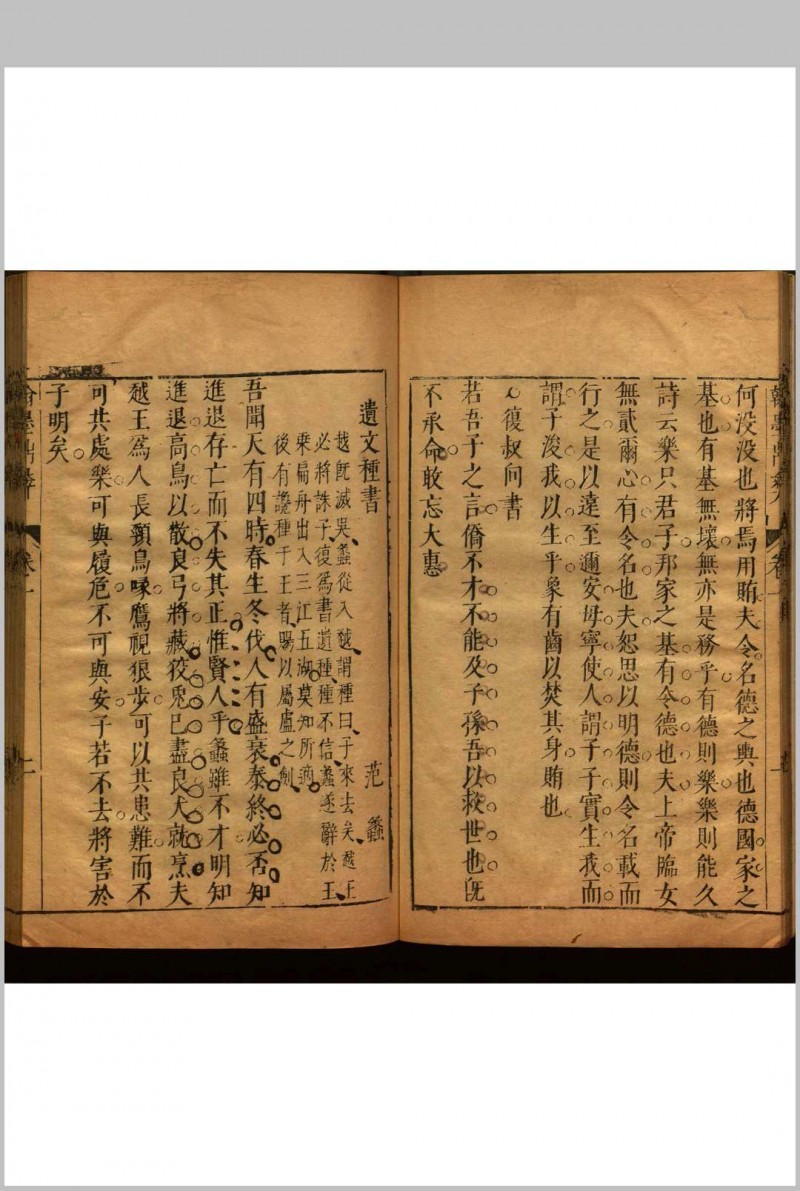 何没没也將焉用賄夫令名德之輿也德國家之
基也有基無壞無亦是務乎有德則樂樂則能久
詩云樂只君子邦家之基有令德也夫上帝臨女
無貳爾心有令名也夫恕思以明德則令名載而
行之是以遠至邇安毋寧使人謂子子實生我而
謂子浚我以生乎象有齒以焚其身賄也
復叔向書
若吾子之言僑不才不能及子孫吾以救世也旣
不承命敢忘大惠
遺文種書 范蠡
越旣滅吳蠡從入越謂種曰子來去矣越王
必將誅子復爲書遺種種不信蠡遂辭於王
乘扁舟出入三江五湖莫知所適
後有讒種于王者賜以屬盧之劍
吾聞天有四時春生冬伐人有盛衰泰終必否知
進退存亡而不失其正惟賢人乎蠡雖不才明知
進退高鳥以散良弓將藏狡兎已盡良犬就烹夫
越王爲人長頸鳥喙鷹視狼步可以共患難而不
可共處樂可與履危不可與安子若不去將害於
子明矣
卷一 二